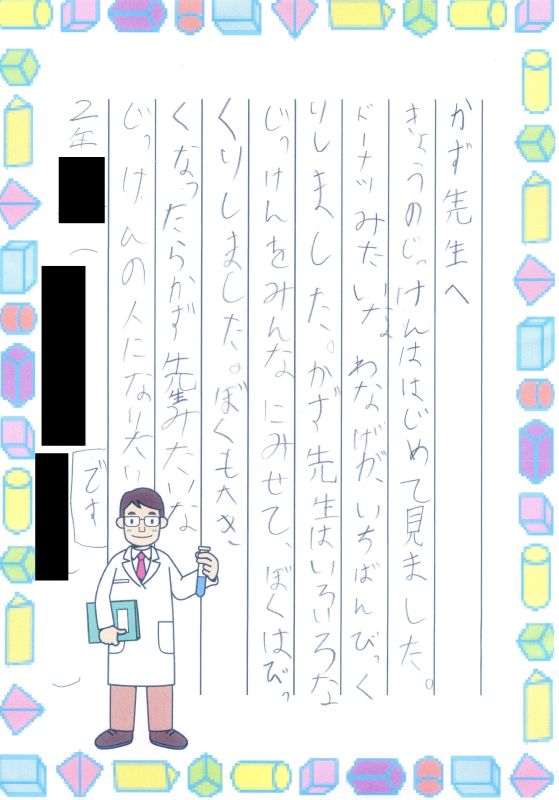 かず先生へ
きょうのじっけんははじめて見ました。
ドーナツみたいなわなげが、いちばんびっく
りしました。かず先生はいろいろな
じっけんをみんなにみせて、ぼくはびっ
くりしました。ぼくも大き
くなったらかず先生みたいな
じっけんの人になりたい
です
2年